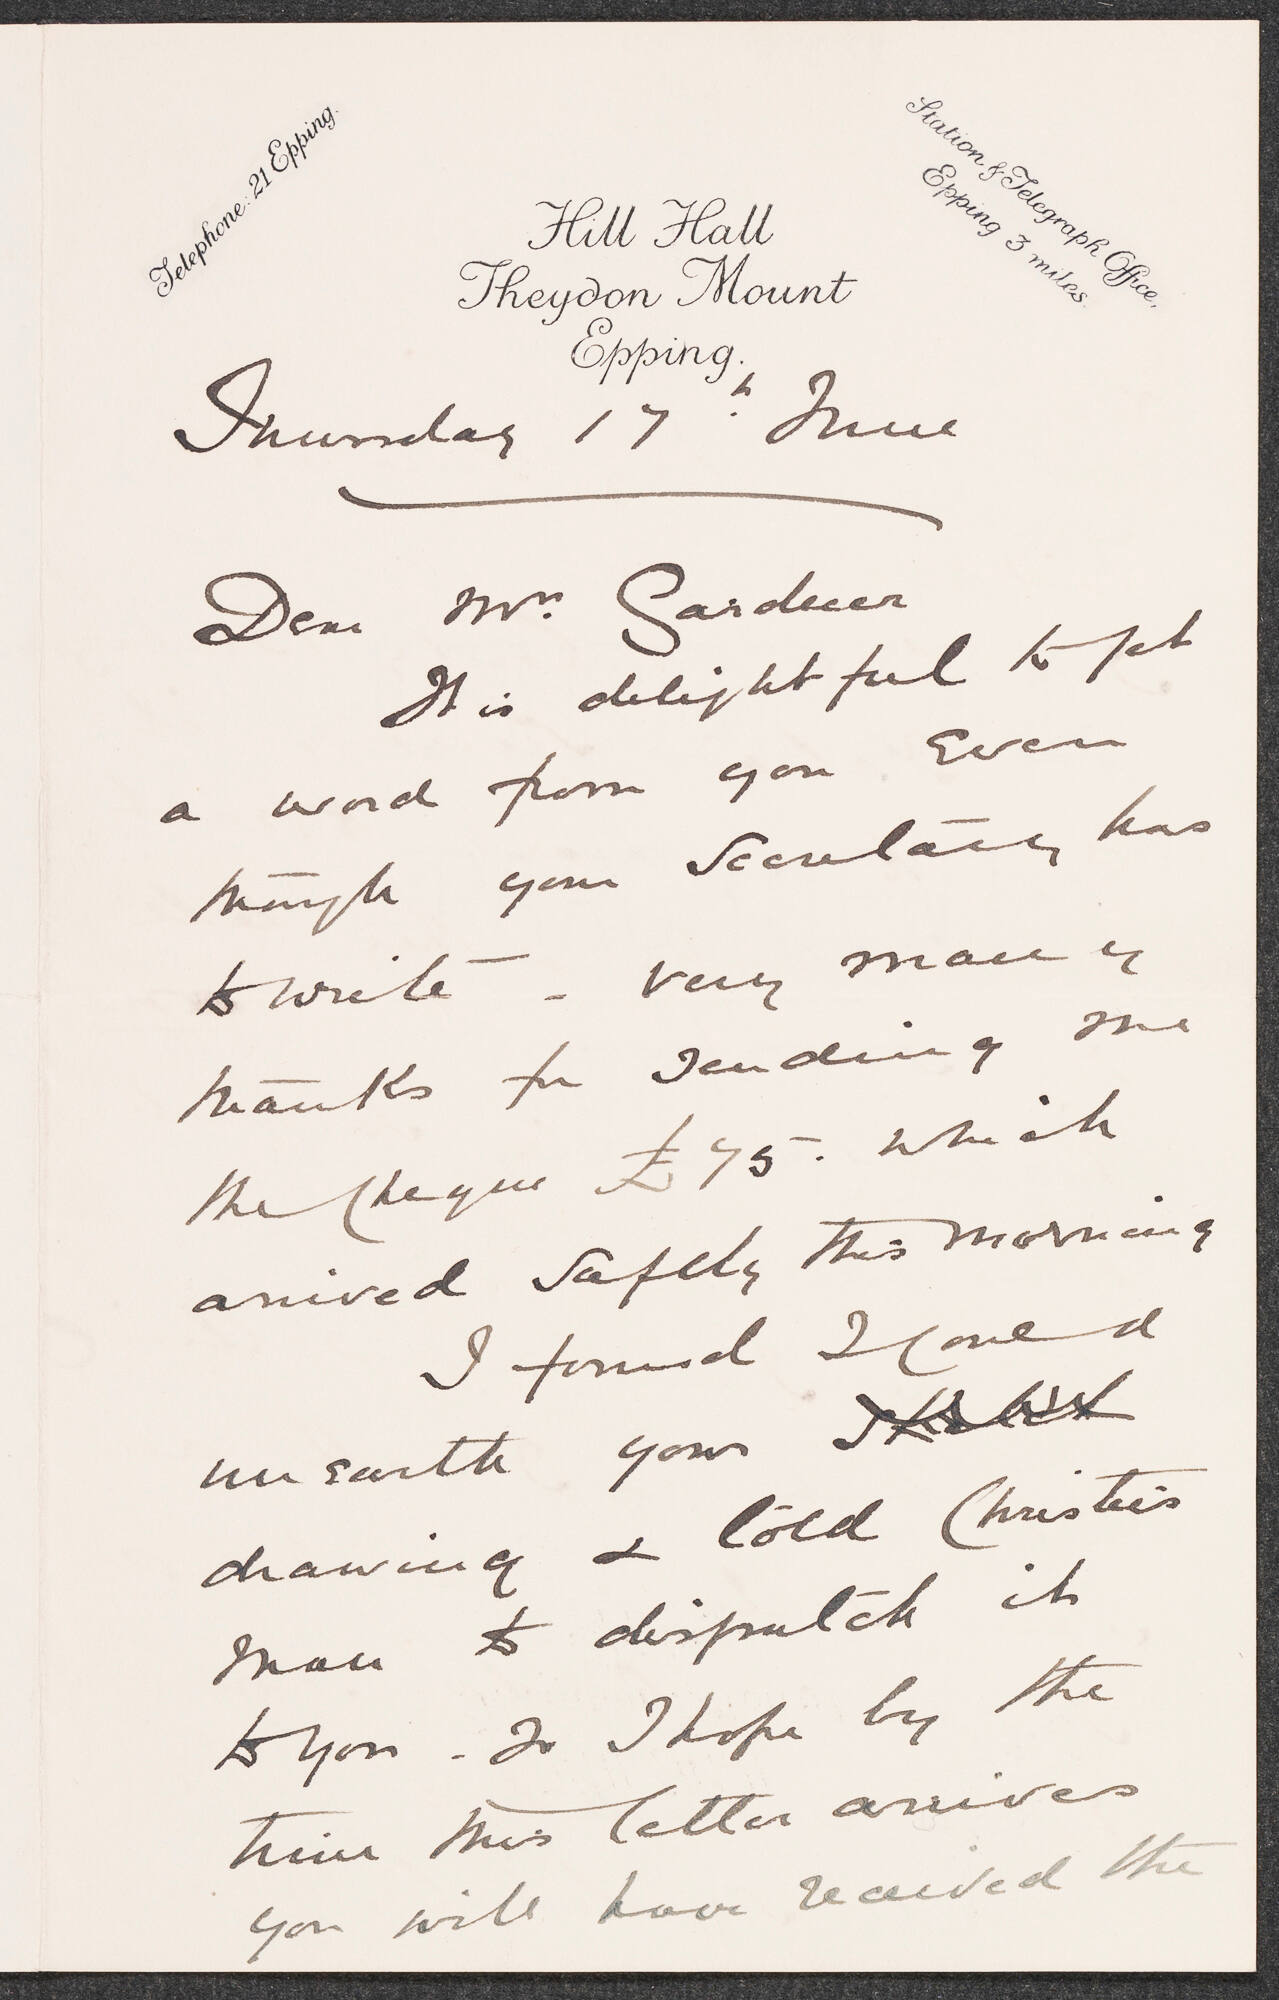 Telephone: 21 Epping.
Station & Telegraph Office,
Epping 3 miles.
Hill Hall
Theydon Mount
Epping.
Thursday 17th June
Dear Mrs. Gardner
It is delightful to get
a word from you even
though your Secretary has
to write - very many
thanks for sending me
the Cheque £75. which
arrived safely this morning
I found I could
unearth your
drawing & told Christie's
man to dispatch it
to you - So I hope by the
time this letter arrives
you will have received the